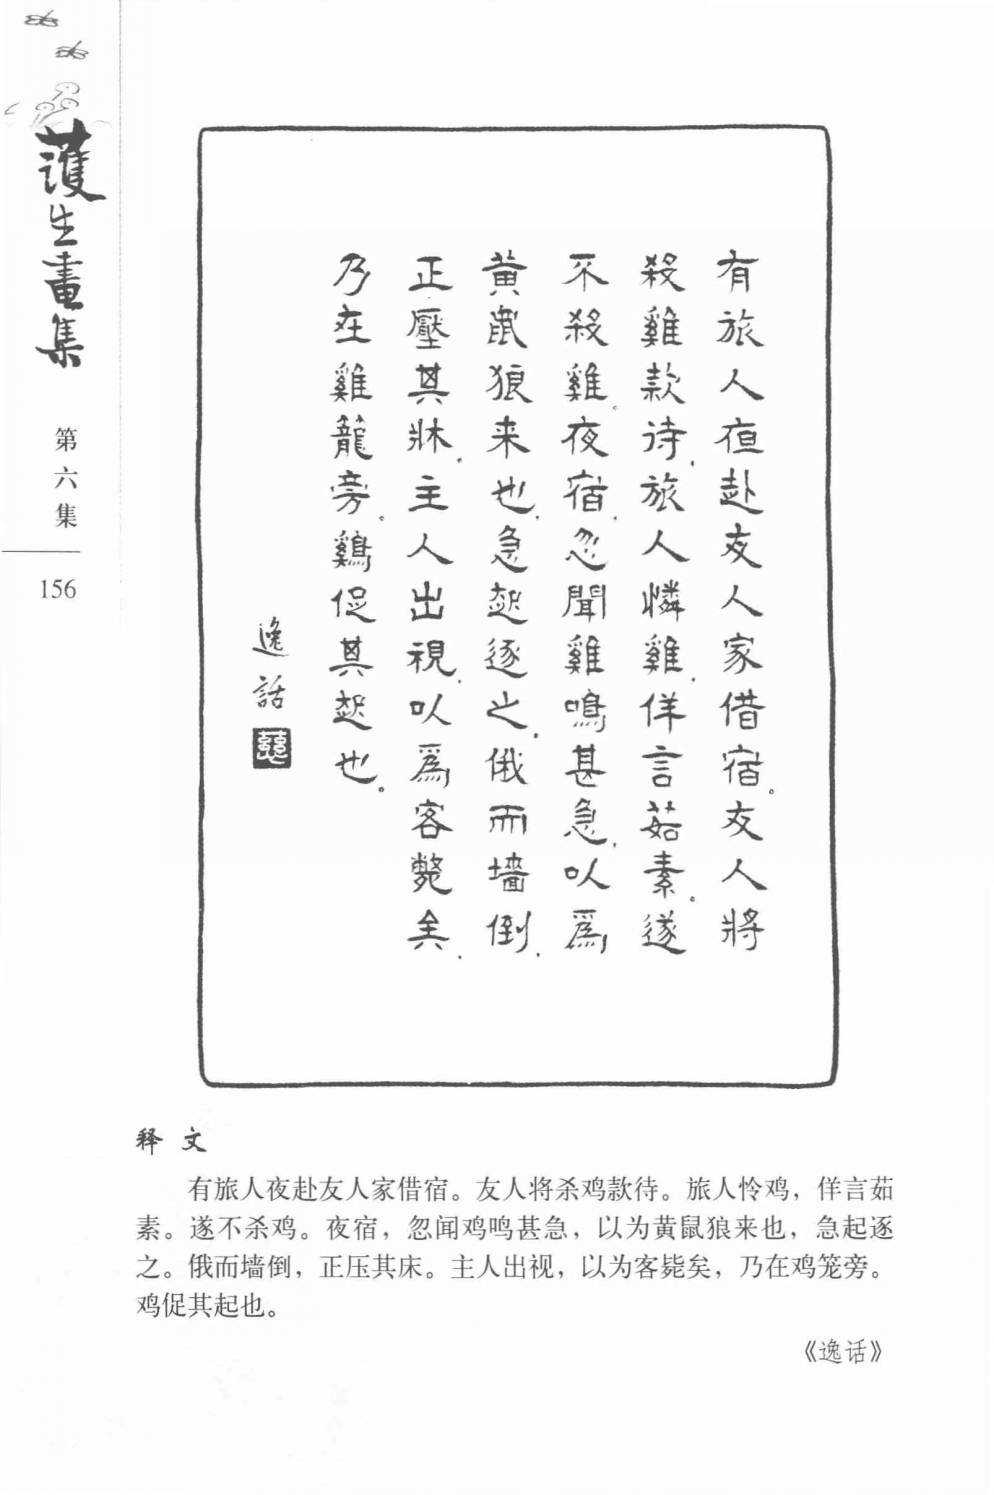 護生畫集
第六集
156
有旅人夜赴友人家借宿。友人將
殺雞款待,旅人憐雞,佯言茹素。遂
不殺雞。夜宿,忽聞雞鳴甚急,以爲
黃鼠狼来也,急起逐之,俄而墻倒,
正壓其牀。主人出視,以爲客斃矣,
乃在雞籠旁。鷄促其起也。
逸話
释文
有旅人夜赴友人家借宿。友人将杀鸡款待。旅人怜鸡，佯言茹
素。遂不杀鸡。夜宿，忽闻鸡鸣甚急，以为黄鼠狼来也，急起逐
之。俄而墙倒，正压其床。主人出视，以为客毙矣，乃在鸡笼旁。
鸡促其起也。
《逸话》